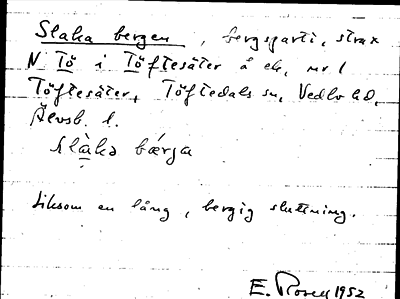 Slaka bergen, bergsparti, strax
N Tö i Töftesäter å ek, nr 1
Töftesäter, Töftedals sn, Vedbo hd,
Älvsb. l.
slàka bǽrga
Liksom en lång, bergig sluttning.
E. Rosell 1952